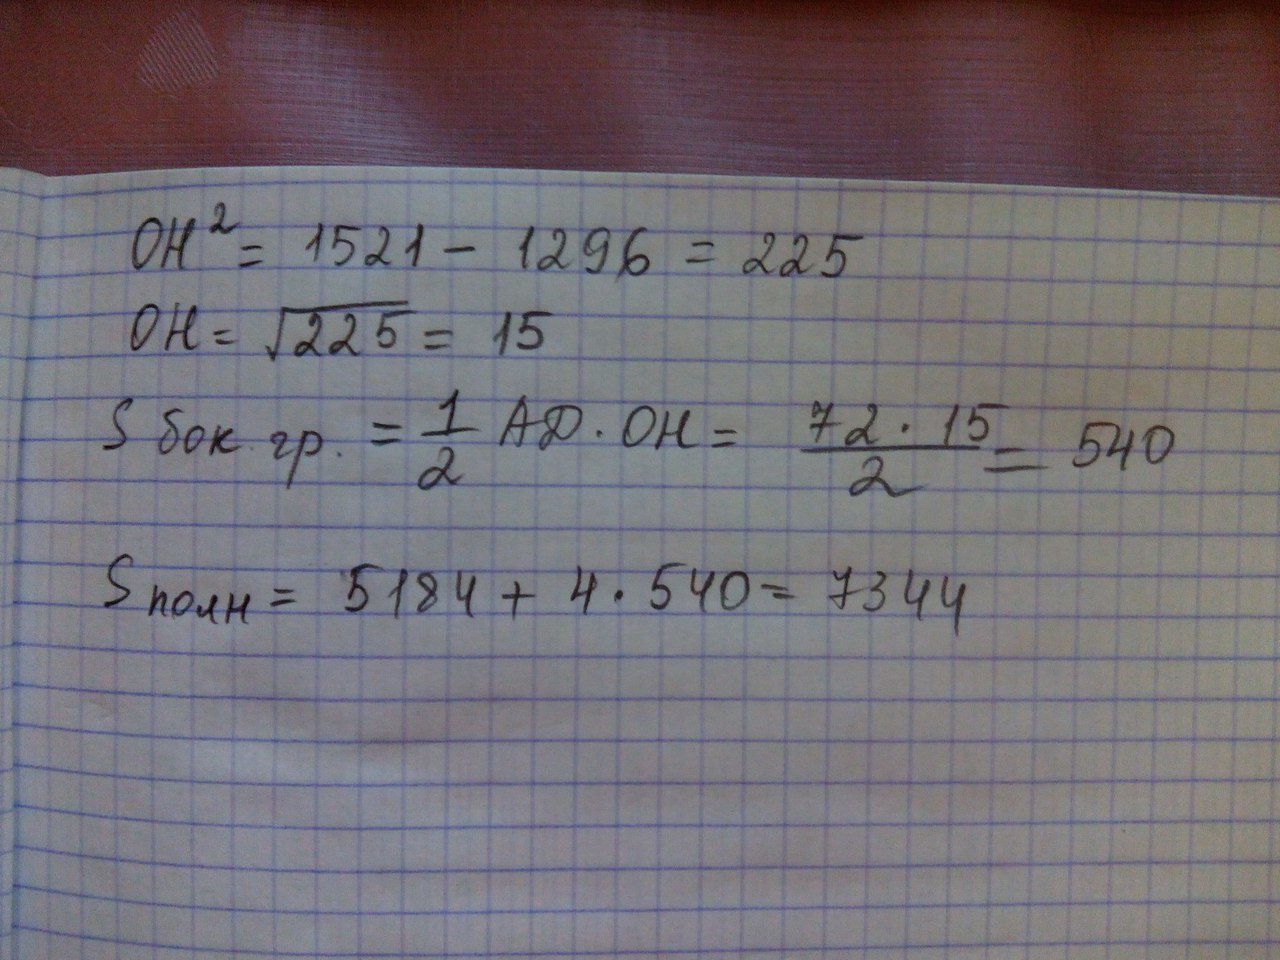 OH² = 1521 - 1296 = 225
OH = √225 = 15
S бок гр. = 1/2 АД · OH = 72 · 15 / 2 = 540
S полн = 5184 + 4 · 540 = 7344